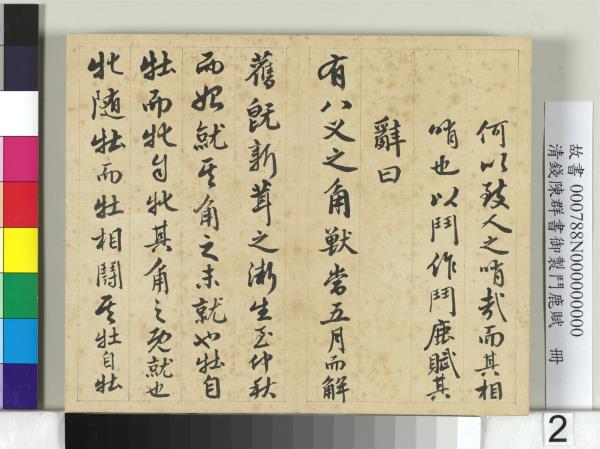 何以致人之哨哉而其相
哨也以鬥作鬥鹿賦其
辭曰
有八叉之角獸當五月而解
舊既新茸之漸生至仲秋
而始就其角之未就也牡自
牡而牝自牝其角之既就也
牝隨牡而牡相鬪其牡自牡
故書 000788N000000000
清錢陳群書御製鬥鹿賦 冊
2